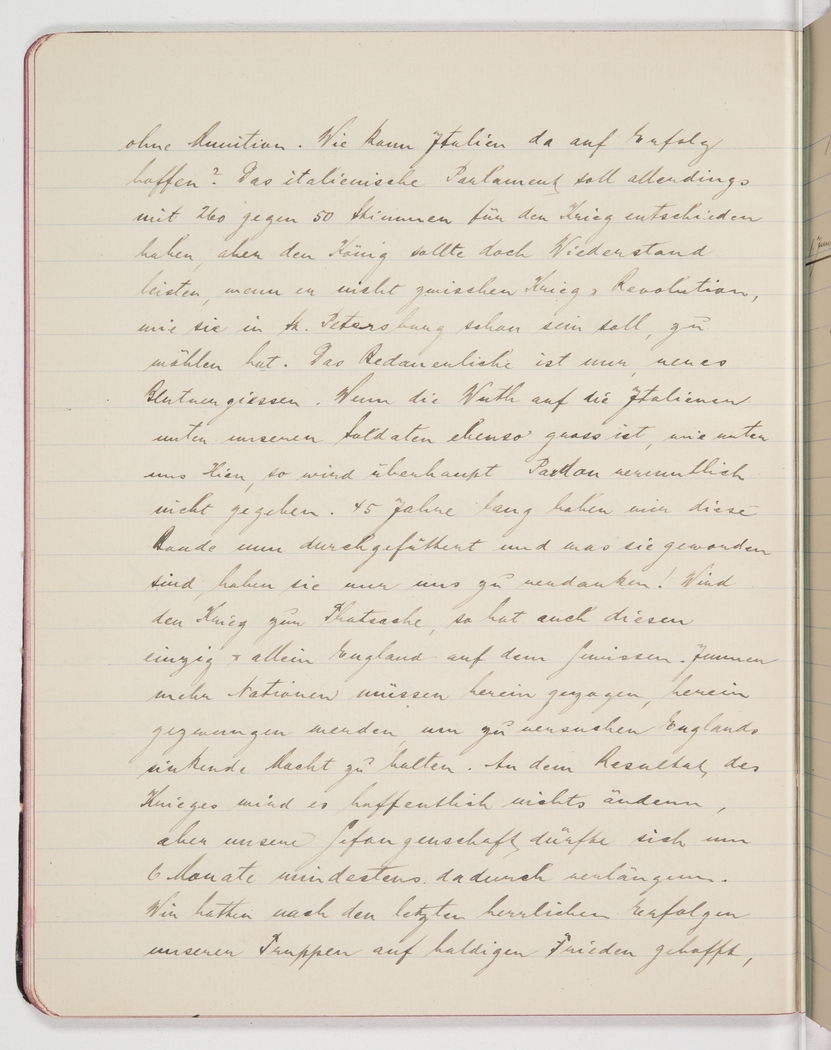 ohne Munition. Wie kann Italien da auf Erfolg
hoffen? Das italienische Parlament soll allerdings
mit 260 gegen 50 Stimmen für den Krieg entschieden
haben, aber der König sollte doch Wiederstand
leisten, wenn er nicht zwischen Krieg & Revolution,
wie sie in St. Petersburg schon sein soll, zu
wählen hat. Das Bedauerliche ist nur, neues
Blutvergiessen. Wenn die Wuth auf die Italiener
unter unseren Soldaten ebenso gross ist, wie unter
uns Hier, so wird überhaupt Pardon vermuthlich
nicht gegeben. 45 Jahre lang haben wir diese
Bande nun durchgefüttert und was sie geworden
sind, haben sie nur uns zu verdanken! Wird
der Krieg zur Thatsache, so hat auch diesen
einzig & allein England auf dem Gewissen. Immer
mehr Nationen müssen herein gezogen, herein
gezwungen werden, um zu versuchen Englands
sinkende Macht zu halten. An dem Resultat des
Krieges wird es hoffentlich nichts ändern,
aber unsere Gefangenschaft dürfte sich um
6 Monate mindestens dadurch verlängern.
Wir hatten nach den letzten herrlichen Erfolgen
unserer Truppen auf baldigen Frieden gehofft,